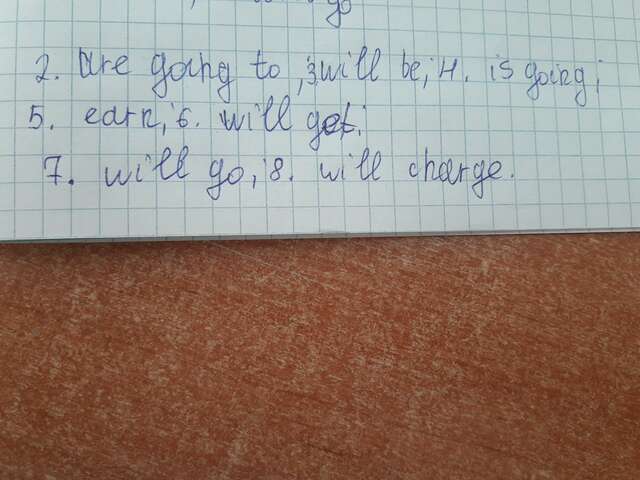 go
2. are going to, 3 will be, 4. is going;
5. earn, 6. will get;
7. will go, 8. will charge.